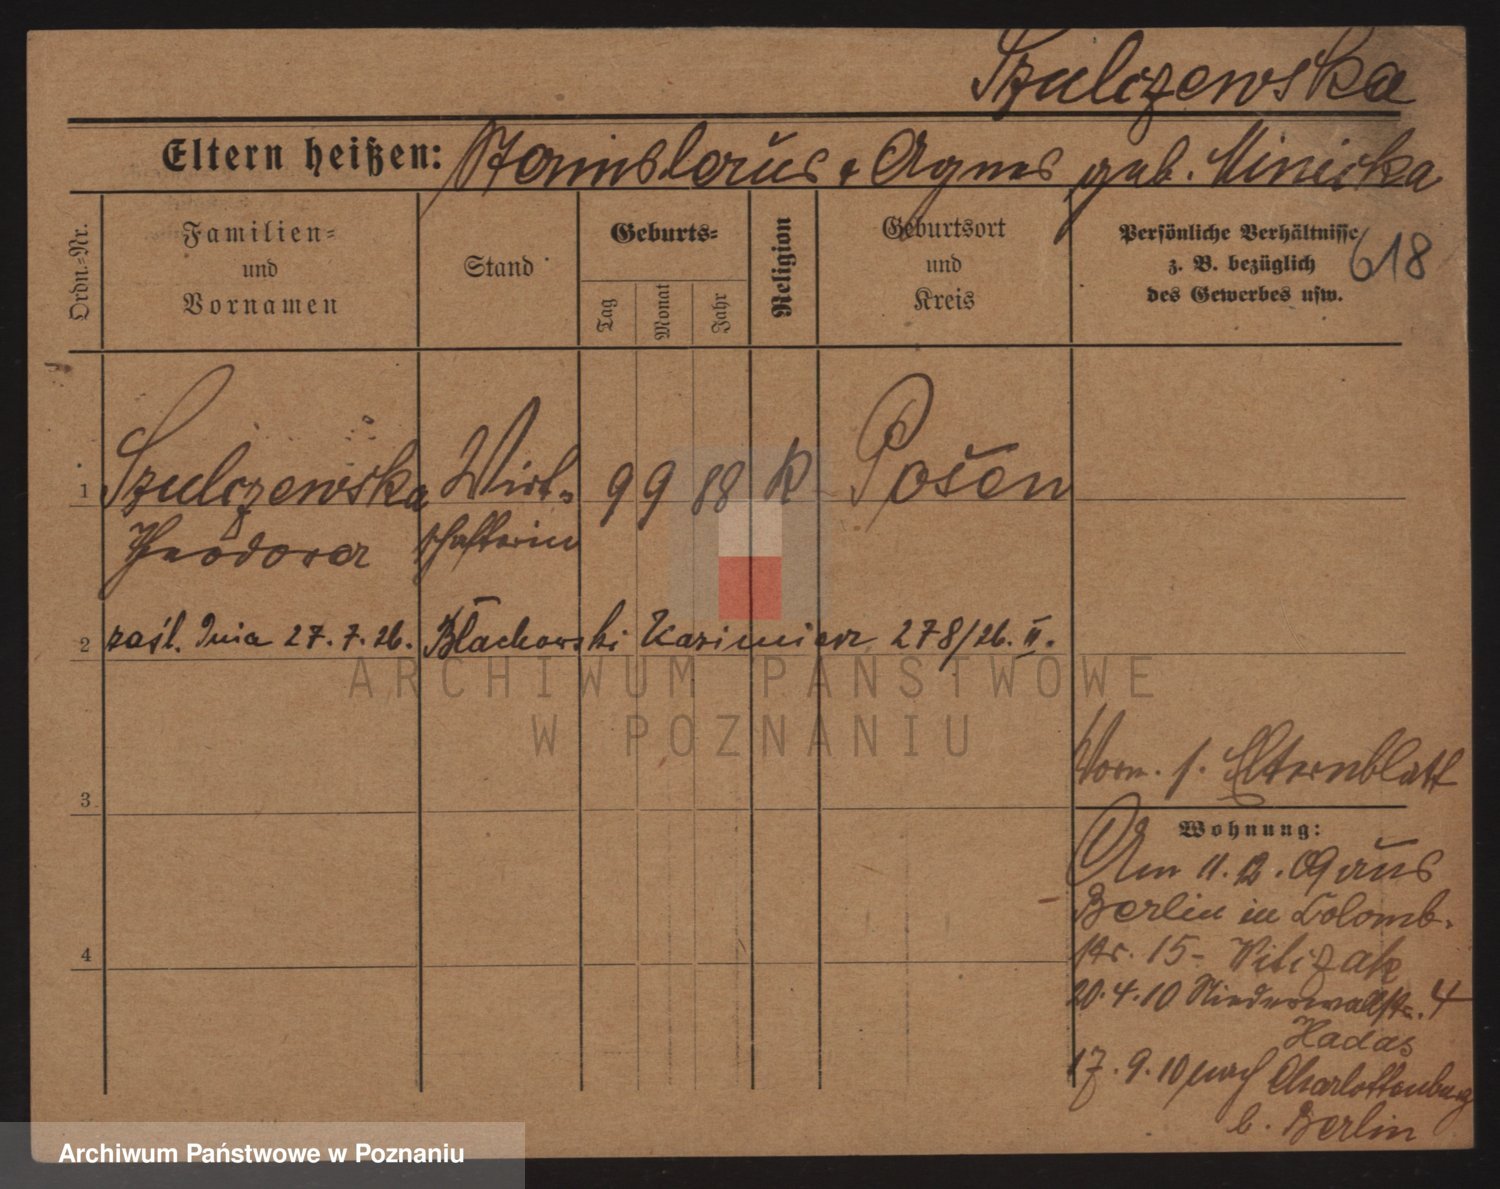 Szulczewska
Eltern heißen: Stanislaus & Agnes geb. Minicka
Ordn.-Nr.
Familien-
und
Vornamen
Stand
Geburts-
Tag
Monat
Jahr
Religion
Geburtsort
und
Kreis
Persönliche Verhältnisse
z. B. bezüglich
des Gewerbes usw.
618
1 Szulczewska Wirt- 9 9 88 K Posen
Theodora schafterin
2 zaśl. dnia 27.7.26. Błachowski Kazimierz 278/26. II.
ARCHIWUM PAŃSTWOWE
W POZNANIU
3
Vorm. s. Elternblatt
Wohnung:
Am 11.12.09 aus
Berlin in Colomb.
str. 15-
4
20.4.10 Niederwallstr. 4
Hadas
17.9.10 nach Charlottenburg
b. Berlin
Archiwum Państwowe w Poznaniu